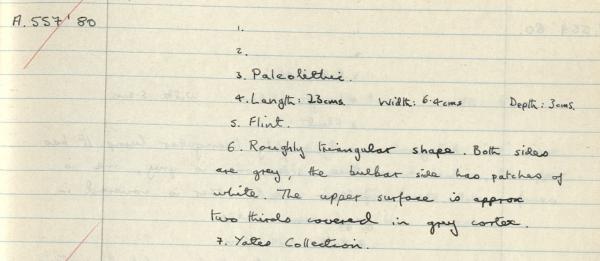 A.557'80
1.
2.
3. Paleolithic.
4. Length: 23cms. Width: 6.4cms Depth: 3cms.
5. Flint.
6. Roughly triangular shape. Both sides
are grey, the bulbar side has patches of
white. The upper surface is approx
two thirds covered in grey cortex.
7. Yates Collection.